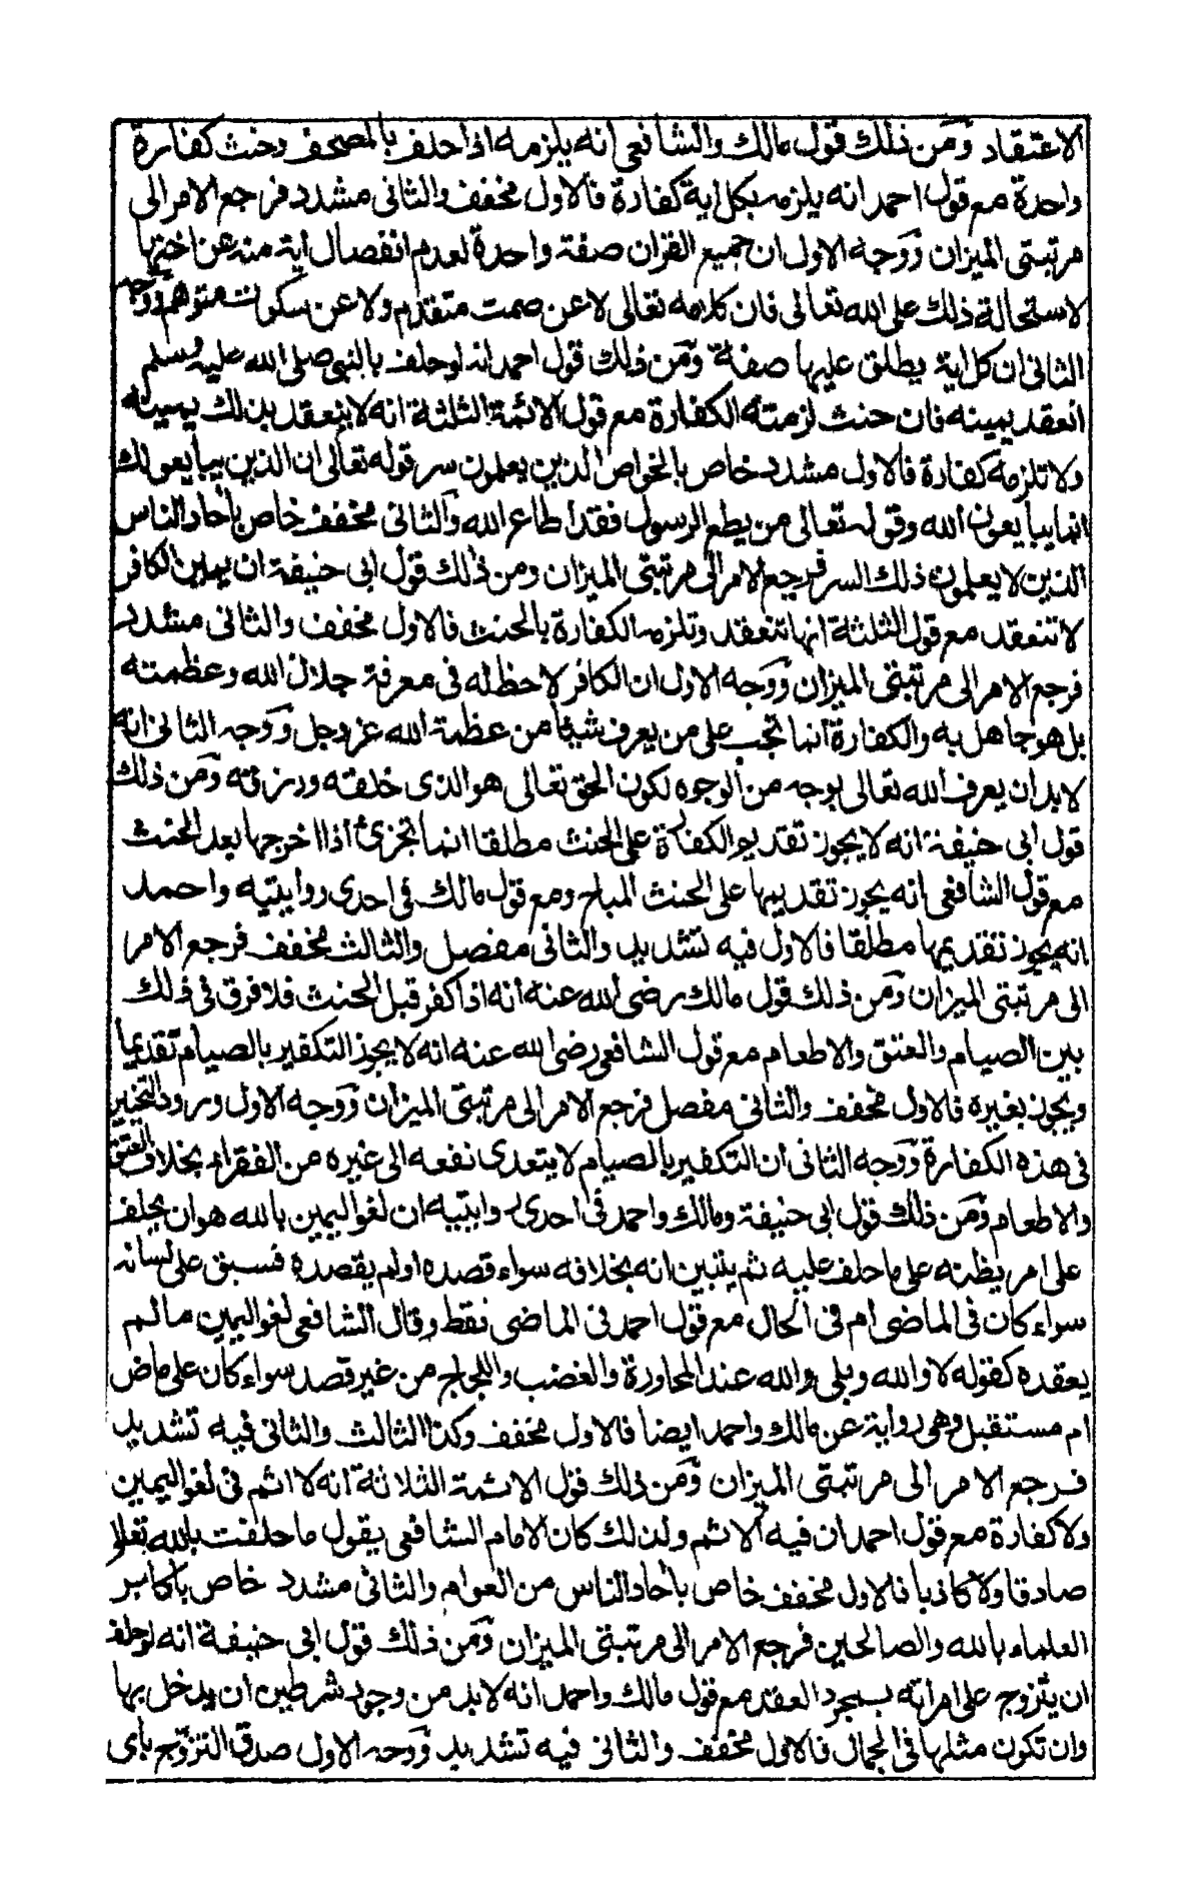 الاعتقاد ومن ذلك قول مالك والشافعى انه يلزمه اذا حلف بالمصحف وحنث كفارة
واحدة مع قول احمد انه يلزمه بكل اية كفارة فالاول مخفف والثانى مشدد فرجع الامر الى
مرتبتى الميزان ووجه الاول ان جميع القران صفة واحدة لعدم انفصال اية منه عن اختها
لاستحالة ذلك على الله تعالى فان كلامه تعالى لا عن صمت متقدم ولا عن سكوت متوهم ووجه
الثانى ان كل اية يطلق عليها صفة ومن ذلك قول احمد انه لو حلف بالنبى صلى الله عليه وسلم
انعقد يمينه فان حنث لزمته الكفارة مع قول الائمة الثلثة انه لا ينعقد بذلك يمينه
ولا تلزمه كفارة فالاول مشدد خاص بالخواص الذين يعلمون سر قوله تعالى ان الذين يبايعونك
انما يبايعون الله وقوله تعالى من يطع الرسول فقد اطاع الله والثانى مخفف خاص باحاد الناس
الذين لا يعلمون ذلك السر فرجع الامر الى مرتبتى الميزان ومن ذلك قول ابى حنيفة ان يمين الكافر
لا تنعقد مع قول الثلثة انها تنعقد وتلزمه الكفارة بالحنث فالاول مخفف والثانى مشدد
فرجع الامر الى مرتبتى الميزان ووجه الاول ان الكافر لا حظ له فى معرفة جلال الله وعظمته
بل هو جاهل به والكفارة انما تجب على من يعرف شيئا من عظمة الله عز وجل ووجه الثانى انه
لا بد ان يعرف الله تعالى بوجه من الوجوه لكون الحق تعالى هو الذى خلقه ورزقه ومن ذلك
قول ابى حنيفة انه لا يجوز تقديم الكفارة على الحنث مطلقا انما تجزئ اذا اخرجها بعد الحنث
مع قول الشافعى انه يجوز تقديمها على الحنث المباح ومع قول مالك فى احدى روايتيه واحمد
انه يجوز تقديمها مطلقا فالاول فيه تشديد والثانى مفصل والثالث مخفف فرجع الامر
الى مرتبتى الميزان ومن ذلك قول مالك رضى الله عنه انه اذا كفر قبل الحنث فلا فرق فى ذلك
بين الصيام والعتق والاطعام مع قول الشافعى رضى الله عنه انه لا يجوز التكفير بالصيام تقديما
ويجوز بغيره فالاول مخفف والثانى مفصل فرجع الامر الى مرتبتى الميزان ووجه الاول ورود التخيير
فى هذه الكفارة ووجه الثانى ان التكفير بالصيام لا يتعدى نفعه الى غيره من الفقراء بخلاف العتق
والاطعام ومن ذلك قول ابى حنيفة ومالك واحمد فى احدى روايتيه ان لغو اليمين بالله هو ان يحلف
على امر يظنه على ما حلف عليه ثم يتبين انه بخلافه سواء قصده او لم يقصده فسبق على لسانه
سواء كان فى الماضى ام فى الحال مع قول احمد فى الماضى فقط وقال الشافعى لغو اليمين ما لم
يعقده كقوله لا والله وبلى والله عند المحاورة والغضب واللجاج من غير قصد سواء كان على ماض
ام مستقبل وهى رواية عن مالك واحمد ايضا فالاول مخفف وكذا الثالث والثانى فيه تشديد
فرجع الامر الى مرتبتى الميزان ومن ذلك قول الائمة الثلاثة انه لا اثم فى لغو اليمين
ولا كفارة مع قول احمد ان فيه الاثم ولذلك كان الامام الشافعى يقول ما حلفت بالله تعالى
صادقا ولا كاذبا فالاول مخفف خاص باحاد الناس من العوام والثانى مشدد خاص باكابر
العلماء بالله والصالحين فرجع الامر الى مرتبتى الميزان ومن ذلك قول ابى حنيفة انه لو حلف
ان يتزوج على امراته بر بمجرد العقد مع قول مالك واحمد انه لا بد من وجود شرطين ان يدخل بها
وان تكون مثلها فى الجمال فالاول مخفف والثانى فيه تشديد ووجه الاول صدق التزوج باى